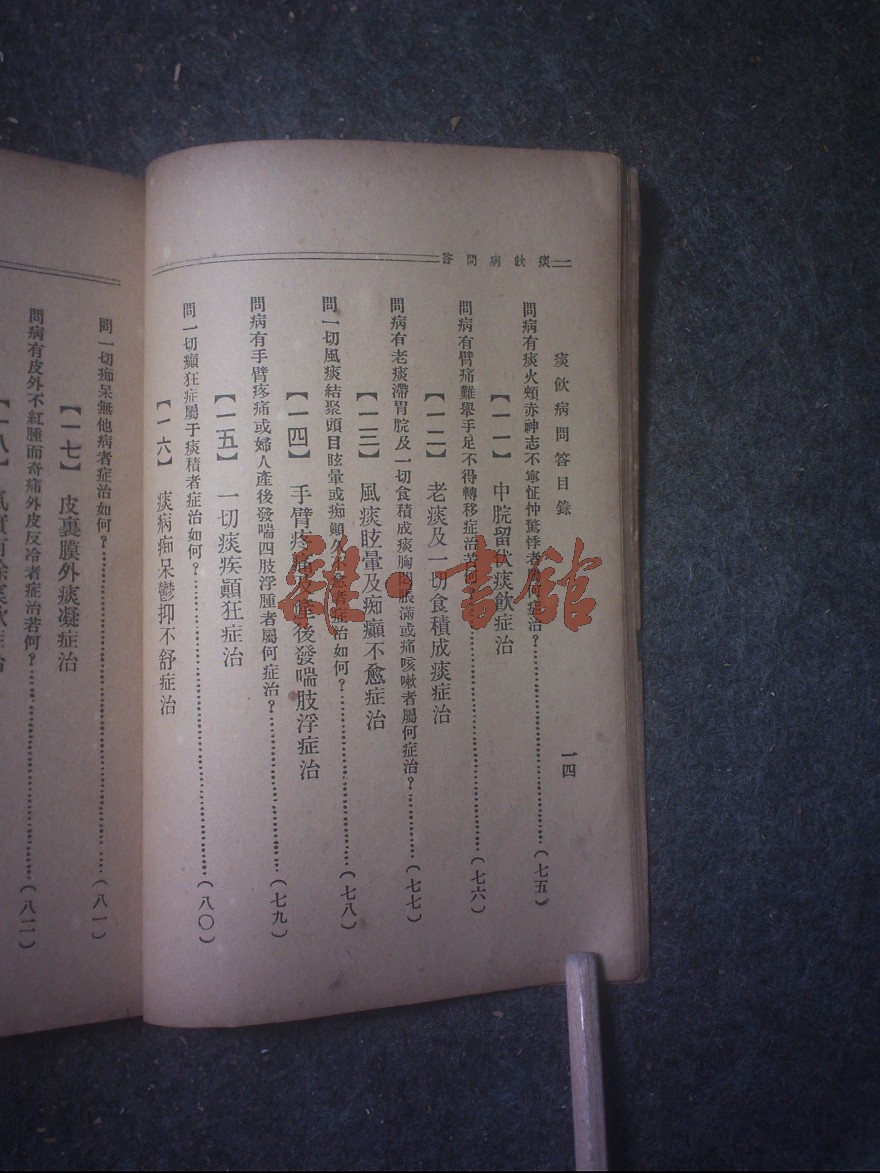 痰飲病問答
痰飲病問答目錄
一四
問病有痰火頰赤神志不寧怔忡驚悸者屬何症治？(七五)
【一一】 中脘留伏痰飲症治
問病有臂痛難舉手足不得轉移症治若何？(七六)
【一二】 老痰及一切食積成痰症治
問病有老痰滯胃脘及一切食積成痰胸悶脹滿或痛咳嗽者屬何症治？(七七)
【一三】 風痰眩暈及痴癲不愈症治
問一切風痰結聚頭目眩暈或痴顚久不愈者症治如何？(七八)
【一四】 手臂疼痛及產後發喘肢浮症治
問病有手臂疼痛或婦人產後發喘四肢浮腫者屬何症治？(七九)
【一五】 一切痰疾顚狂症治
問一切癲狂症屬于痰積者症治如何？(八〇)
【一六】 痰病痴呆鬱抑不舒症治
問一切痴呆無他病者症治如何？(八一)
【一七】 皮裏膜外痰凝症治
問病有皮外不紅腫而奇痛外皮反冷者症治若何？(八二)
【一八】
雜·書館